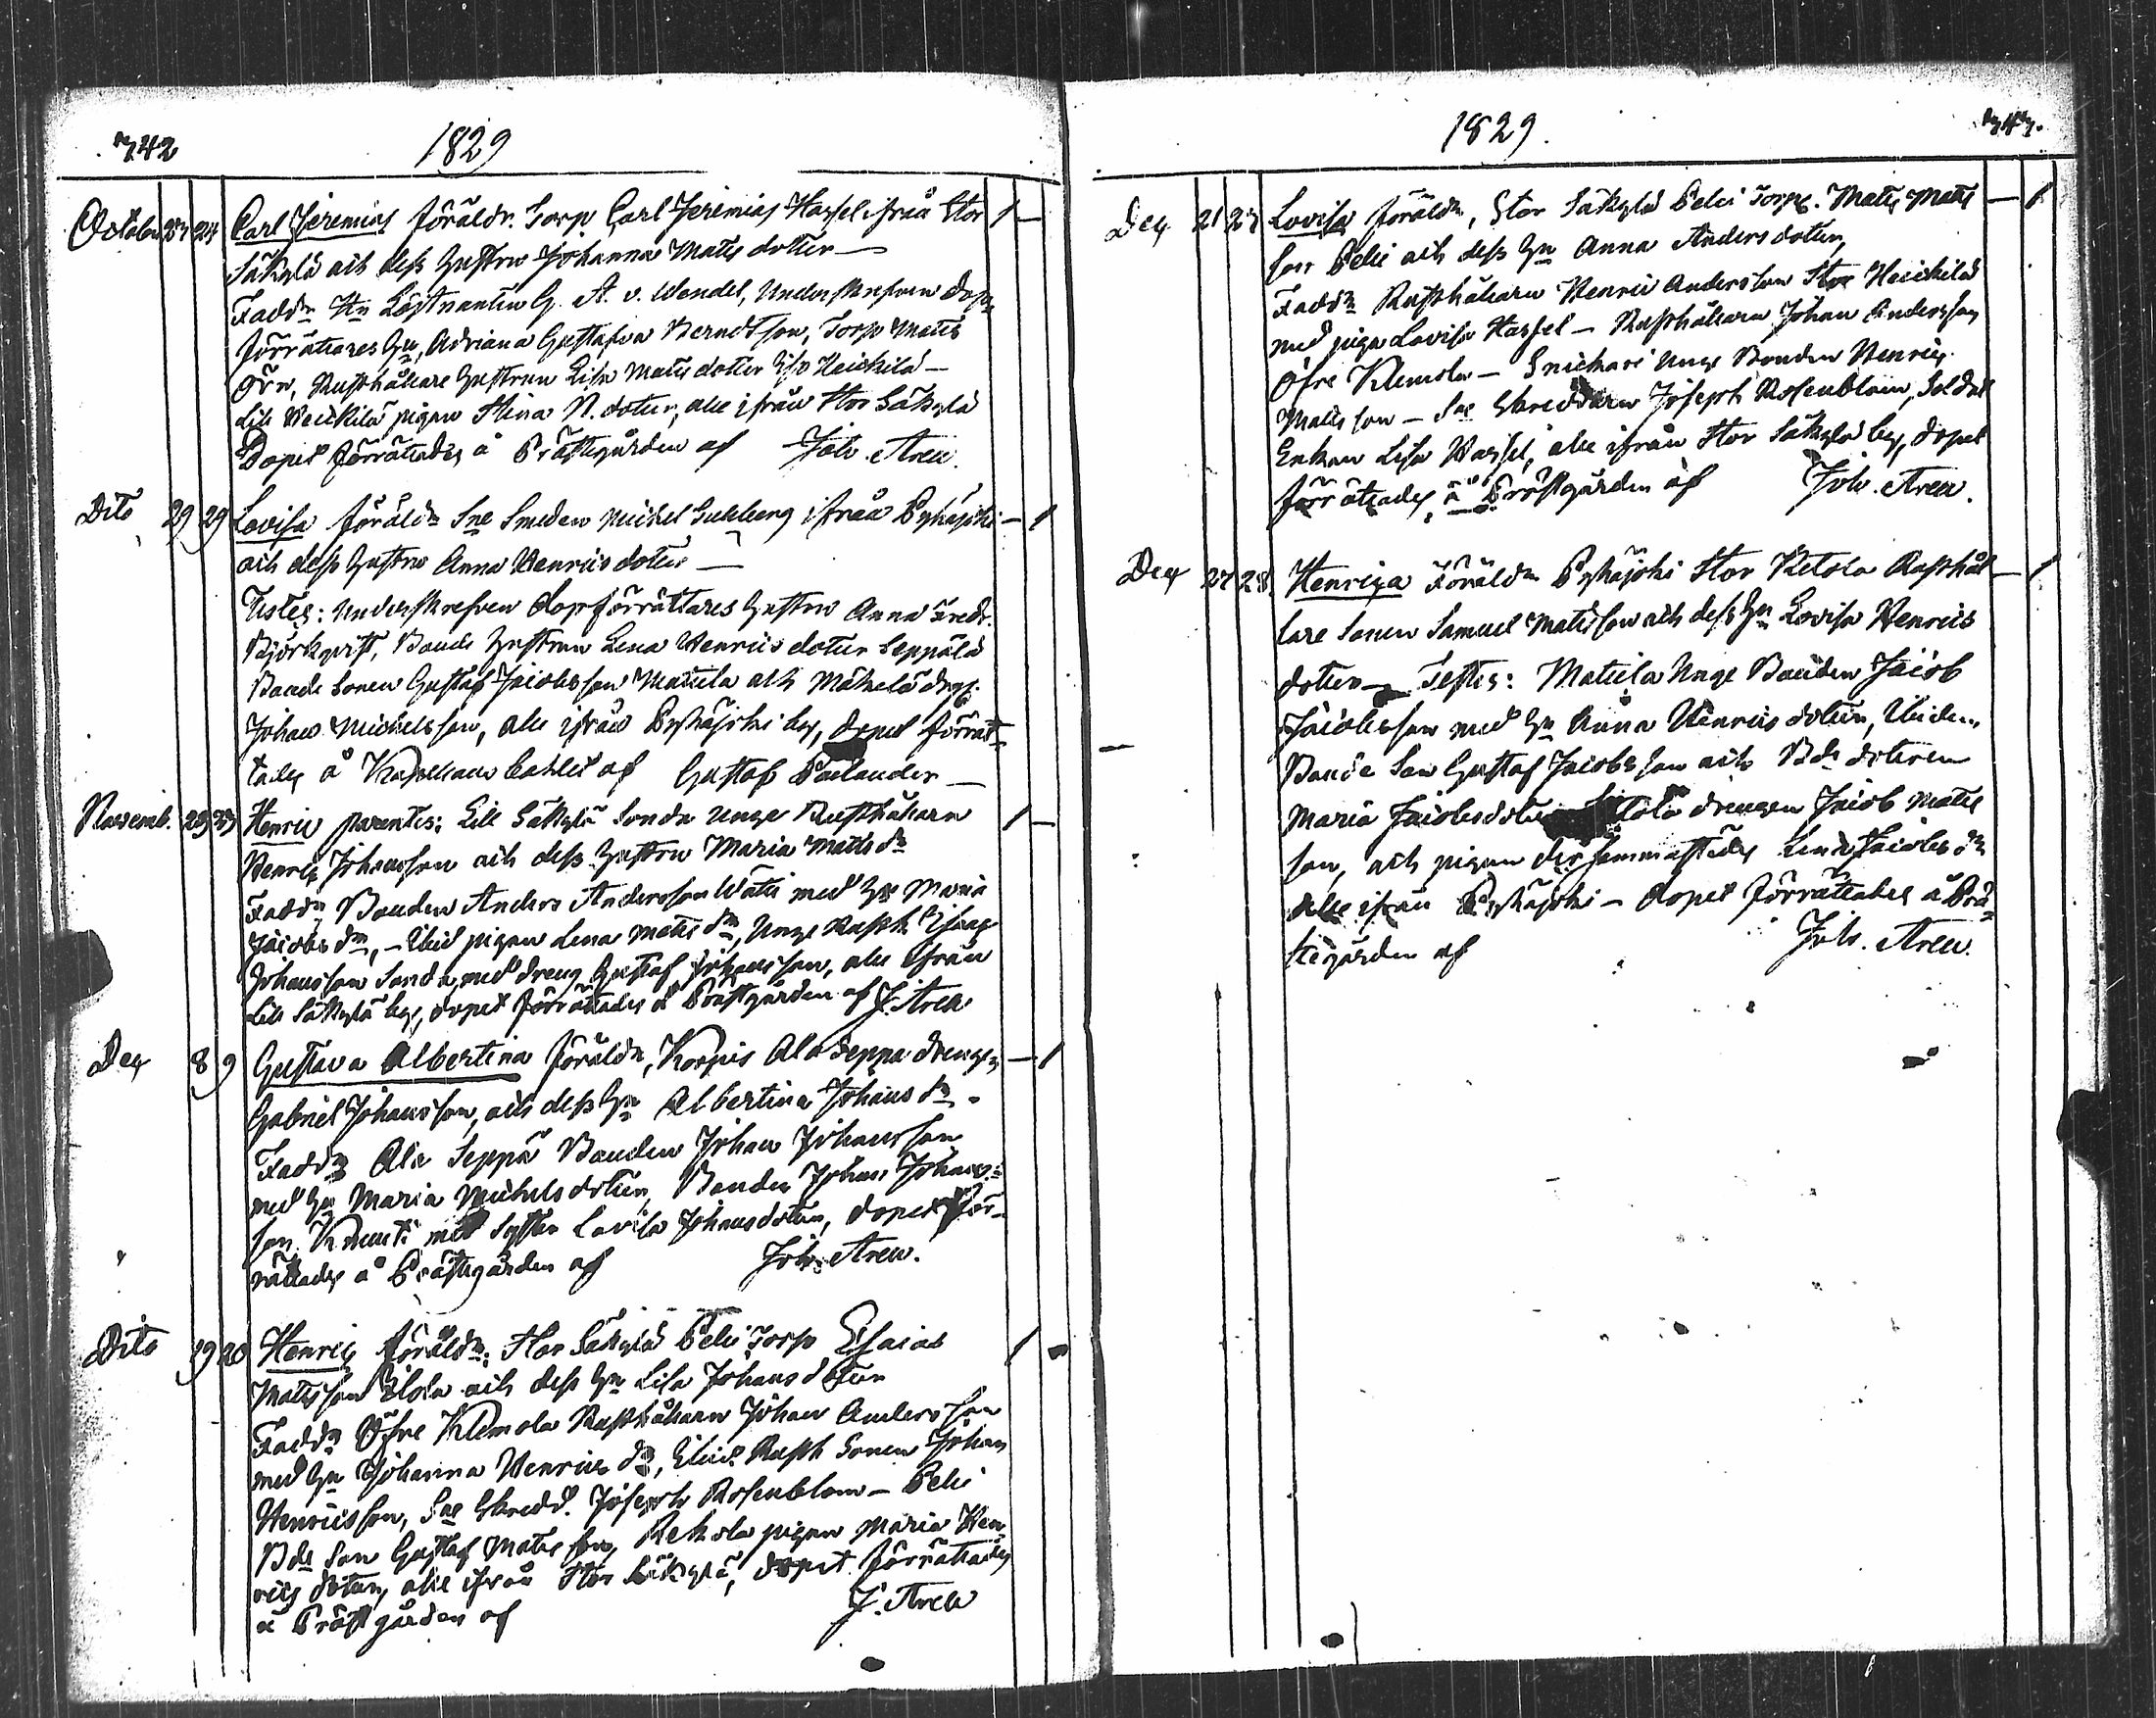 742
1829
October 23 24 Carl Jeremias föräldr. Torp Carl Jeremias Hassel ifrån Stor 1 —
Säkylä och dess Hustru Johanna Mats dotter —
Faddr Hr Löjtnanten G. A. v. Wendel, Underskrefven dop
förrättares Hu, Adriana Gustafva Berndtson, Torp Matts
Örn, Rusthållare Hustrun Lisa Matsdotter Heickilä —
Lill Heickilä pigan Stina M. dotter, alle ifrån Stor Säkylä
Dopet förrättades å Prästegården af Joh. Aren.
Dito 29 29 Lovisa föräldr Sne Smeden Michel ifrån Pyhäjoki — 1
och dess Hustru Anna Henricsdotter —
Testes: Underskrefven dopförrättares Hustru Anna Fredr.
Björkqvist, Bonde Hustrun Lena Henricsdotter Seppälä
Bonde Sonen Gustaf Jacobsson Mattila och Mäkelä drg.
Johan Michelsson, alle ifrån Pyhäjoki by, dopet förrät-
tades å Kapellans bohlet af Gustaf Pailander —
Novemb. 23 Henric parentes: Lill Säkylä Sonda unge Rusthållaren 1 —
Henric Johansson och dess Hustru Maria Matts dr
Faddr Bonden Anders Andersson Wäti med Hu Maria
Jacobs dr, — pigan Lena Matts dr, Unge Rusth Isaac
Johansson Sonda med dreng Gustaf Johansson, alle ifrån
Lill Säkylä by, dopet förrättades å Prästgården af J. Aren
Dec 8 9 Gustava Albertina föräldr, Korpis Ala Seppä drengen — 1
Gabriel Johansson, och dess Hu Albertina Johans dr.
Faddr Ala Seppä Bonden Johan Johansson
med Hu Maria Michelsdotter, Bonden Johan Johans-
son Knuuti med Syster Lovisa Johansdotter, dopet för-
rättades å Prästegården af Joh. Aren.
Dito 19 20 Henric föräldr: Stor Säkylä Pelii Torp Esaias 1
Matsson och dess Hu Lisa Johansdotter
Faddr Öfre Klemola Rusthållaren Johan Andersson
med Hu Johanna Henrics dr, Rusth Sonen Johan
Henricsson, Sne Skredd. Joseph Rosenblom — Pelii
Bde Son Gustaf Matsson, Rekola pigan Maria Hen
rics dotter, alle ifrån Stor Säkylä, dopet förrättades
å Prästgården af J. Aren
1829.
743.
Dec 21 23 Lovisa föräldr, Stor Säkylä Pelii Torp. Mats Mats — 1
son Pelii och dess Hu Anna Andersdotter,
Faddr Rusthållaren Henric Andersson Stor Heickilä
med pigan Lovisa Hassel — Rusthållaren Johan Andersson
Öfre Klemola — Snickari Unge Bonden Henric
Matsson — Sne Skreddaren Joseph Rosenblom, Soldat
Enkan Lisa Hassel, alle ifrån Stor Säkylä by, dopet
förrättades å Prästgården af Joh. Aren.
Dec 27 28 Henrica Föräldr Pyhäjoki Stor Ketola Rusthål — 1
lare Sonen Samuel Matsson och dess Hu Lovisa Henrics
dotter — Testes: Mattila Unge Bonden Jacob
Jacobsson med Hu Anna Henricsdotter,
Bonde Son Gustaf Jacobsson och Bde dotren
Maria Jacobsdotter drengen Jacob Mats
son, och pigan dersammastädes Lena Jacobs dr
alle ifrån Pyhäjoki — dopet förrättades å Prä
stegården af Joh. Aren.